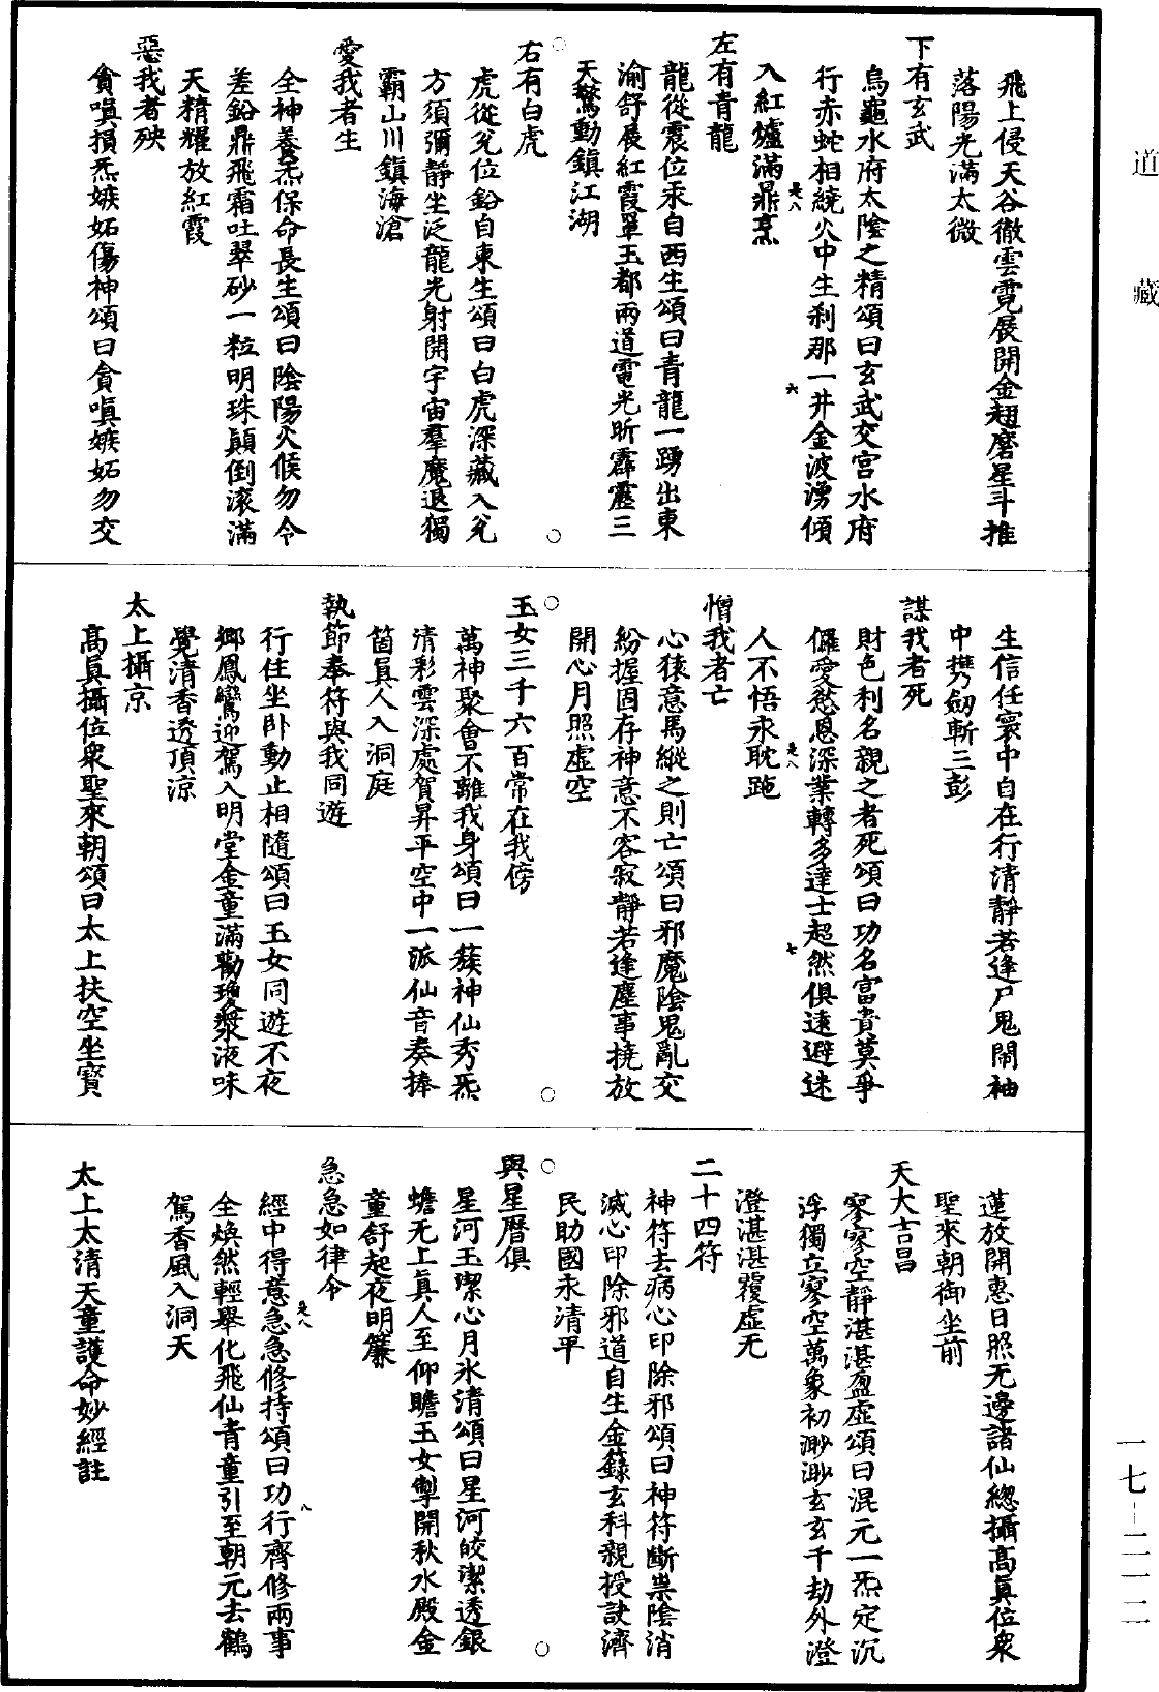 道藏
飛上侵天谷徹雲霓展開金翅磨星斗推
落陽光滿太微
下有玄武
烏龜水府太陰之精頌曰玄武交宮水府
行赤蛇相繞火中生剎那一井金波湧傾
是八
六
入紅爐滿鼎烹
左有青龍
龍從震位汞自西生頌曰青龍一踴出東
渝舒展紅霞罩玉都兩道電光昕霹靂三
天驚動鎮江湖
○
○
右有白虎
虎從兊位鉛自東生頌曰白虎深藏入兊
方須彌靜坐泛龍光射開宇宙羣魔退獨
霸山川鎮海滄
愛我者生
全神養炁保命長生頌曰陰陽火候勿令
差鉛鼎飛霜吐翠砂一粒明珠顛倒滚滿
天精耀放紅霞
惡我者殃
貪嗔損炁嫉妬傷神頌曰貪嗔嫉妬勿交
生信任寰中自在行清靜若逢尸鬼鬧袖
中㩦劒斬三彭
謀我者死
財色利名親之者死頌曰功名富貴莫爭
儸愛慾恩深業轉多達士超然俱遠避迷
是八
七
人不悟永耽跎
憎我者亡
心猿意馬縱之則亡頌曰邪魔陰鬼亂交
紛握固存神意不容寂靜若逢塵事撓放
開心月照虛空
○
○
玉女三千六百常在我傍
萬神聚會不離我身頌曰一蔟神仙秀炁
清彩雲深處賀昇平空中一派仙音奏捧
箇眞人入洞庭
執節奉符與我同遊
行住坐卧動止相隨頌曰玉女同遊不夜
鄉鳳鸞迎駕入明堂金童滿勸瓊漿液味
覺清香透頂凉
太上攝京
高眞攝位衆聖來朝頌曰太上扶空坐寶
蓮放開惠日照无邊諸仙總攝高眞位衆
聖來朝御坐前
天大吉昌
寥寥空靜湛湛盈虛頌曰混元一炁定沉
浮獨立寥空萬象初渺渺玄玄千劫外澄
澄湛湛覆虛无
二十四符
神符去病心印除邪頌曰神符斷祟陰消
滅心印除邪道自生金籙玄科親授訣濟
民助國永清平
○
○
與星曆俱
星河玉潔心月氷清頌曰星河皎潔透銀
蟾无上眞人至仰瞻玉女掣開秋水殿金
童舒起夜明簾
急急如律令
是八
八
經中得意急急修持頌曰功行齊修兩事
全煥然輕舉化飛仙青童引至朝元去鶴
駕香風入洞天
太上太清天童護命妙經註
一七-二一二